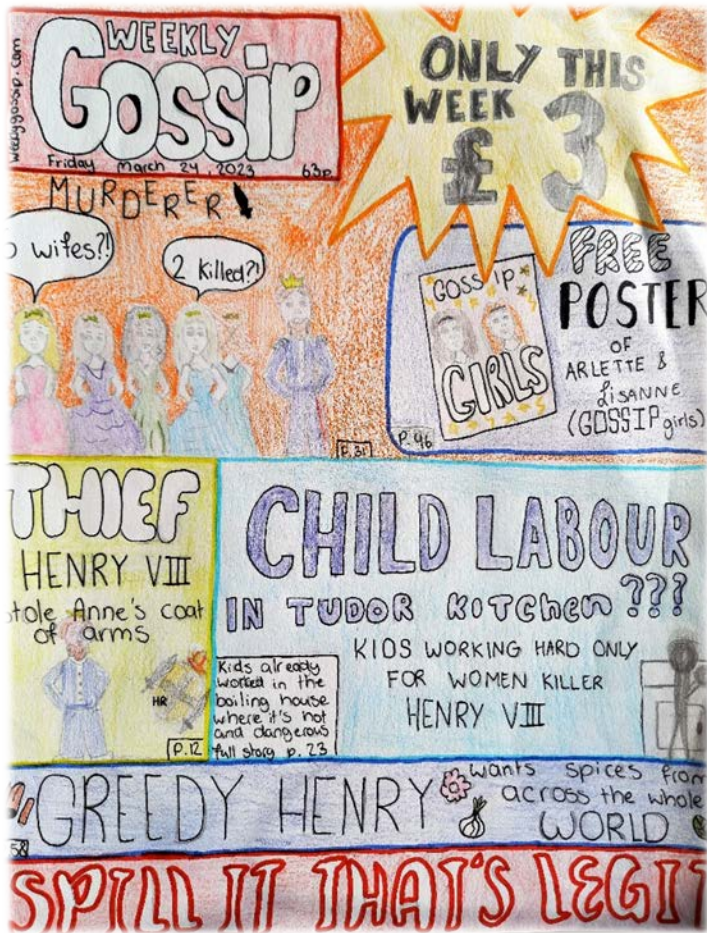 weeklygossip.com
WEEKLY
GOSSiP
Friday March 24, 2023 63p.
ONLY THIS
WEEK
£3
MURDERER!
wifes?!
2 killed?!
P.31
GOSSIP
GIRLS
P.46
FREE
POSTER
OF
ARLETTE &
LISANNE
(GOSSIP girls)
THIEF
HENRY VIII
stole Anne's coat
of arms
HR
P.12
CHILD LABOUR
IN TUDOR KITCHEN???
KIDS WORKING HARD ONLY
FOR WOMEN KILLER
HENRY VIII
Kids already
worked in the
boiling house
where it's hot
and dangerous
full story p. 23
GREEDY HENRY
wants spices from
across the whole
WORLD
58
SPILL IT THAT'S LEGIT